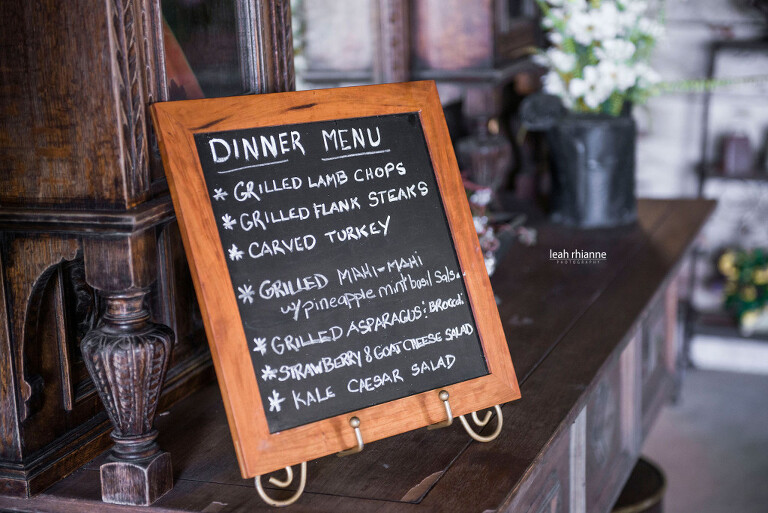 DINNER MENU
* GRILLED LAMB CHOPS
* GRILLED FLANK STEAKS
* CARVED TURKEY
* GRILLED MAHI-MAHI
w/ pineapple mint basil Salsa
* GRILLED ASPARAGUS & BROCCOLI
* STRAWBERRY & GOAT CHEESE SALAD
* KALE CAESAR SALAD
leah rhianne
PHOTOGRAPHY